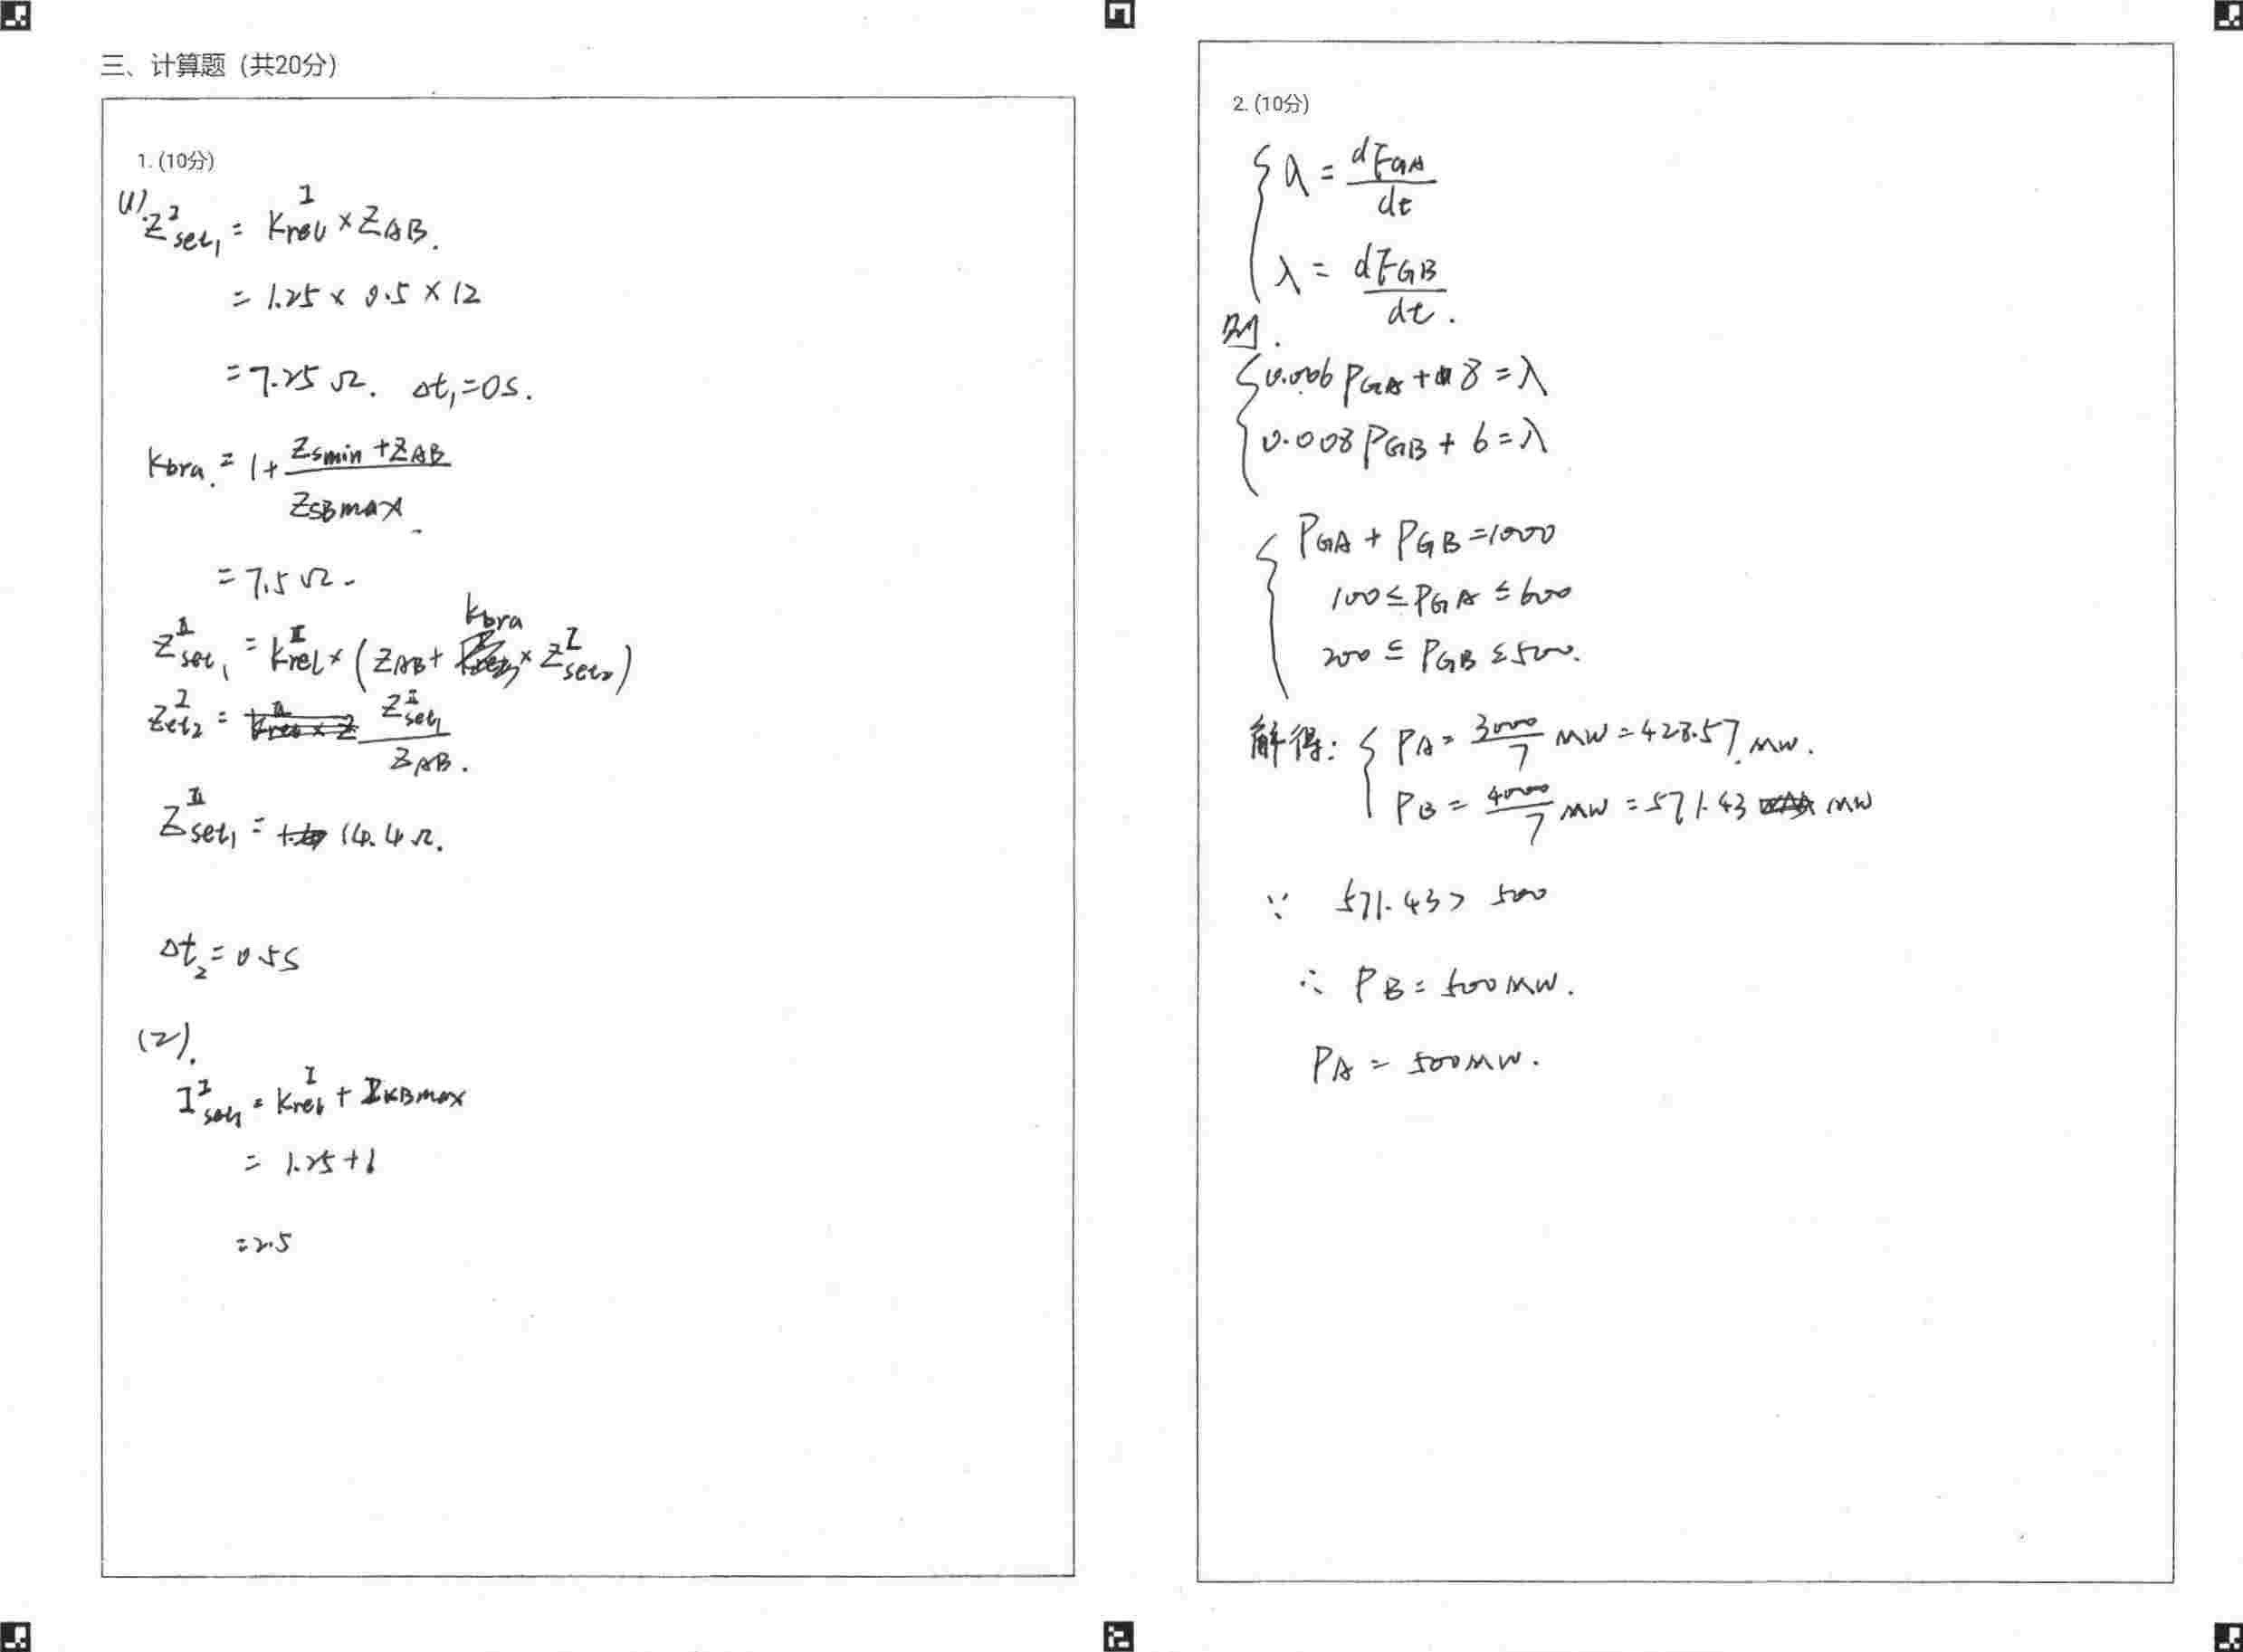 三、计算题（共20分）
1. (10分)
(1). Z^I_set1 = K^I_rel × Z_AB.
= 1.25 × 0.5 × 12
= 7.25 Ω. Δt₁ = 0s.
K_bra. = 1 + (Z_smin + Z_AB) / Z_SBmax
= 7.5 Ω.
Z^II_set1 = K^II_rel × (Z_AB + K_bra × Z^I_set2)
Z^I_et2 = Z^II_set1 / Z_AB.
Z^II_set1 = 14.4 Ω.
Δt₂ = 0.5s
(2).
I^I_set1 = K^I_rel + I_KBmax
= 1.25 + 1
= 2.5
2. (10分)
{ λ = dF_GA / dt
λ = dF_GB / dt.
则.
{ 0.006 P_GA + 8 = λ
0.008 P_GB + 6 = λ
{ P_GA + P_GB = 1000
100 ≤ P_GA ≤ 600
200 ≤ P_GB ≤ 500.
解得: { P_A = 3000/7 MW = 428.57 MW.
P_B = 4000/7 MW = 571.43 MW
∵ 571.43 > 500
∴ P_B = 500MW.
P_A = 500MW.